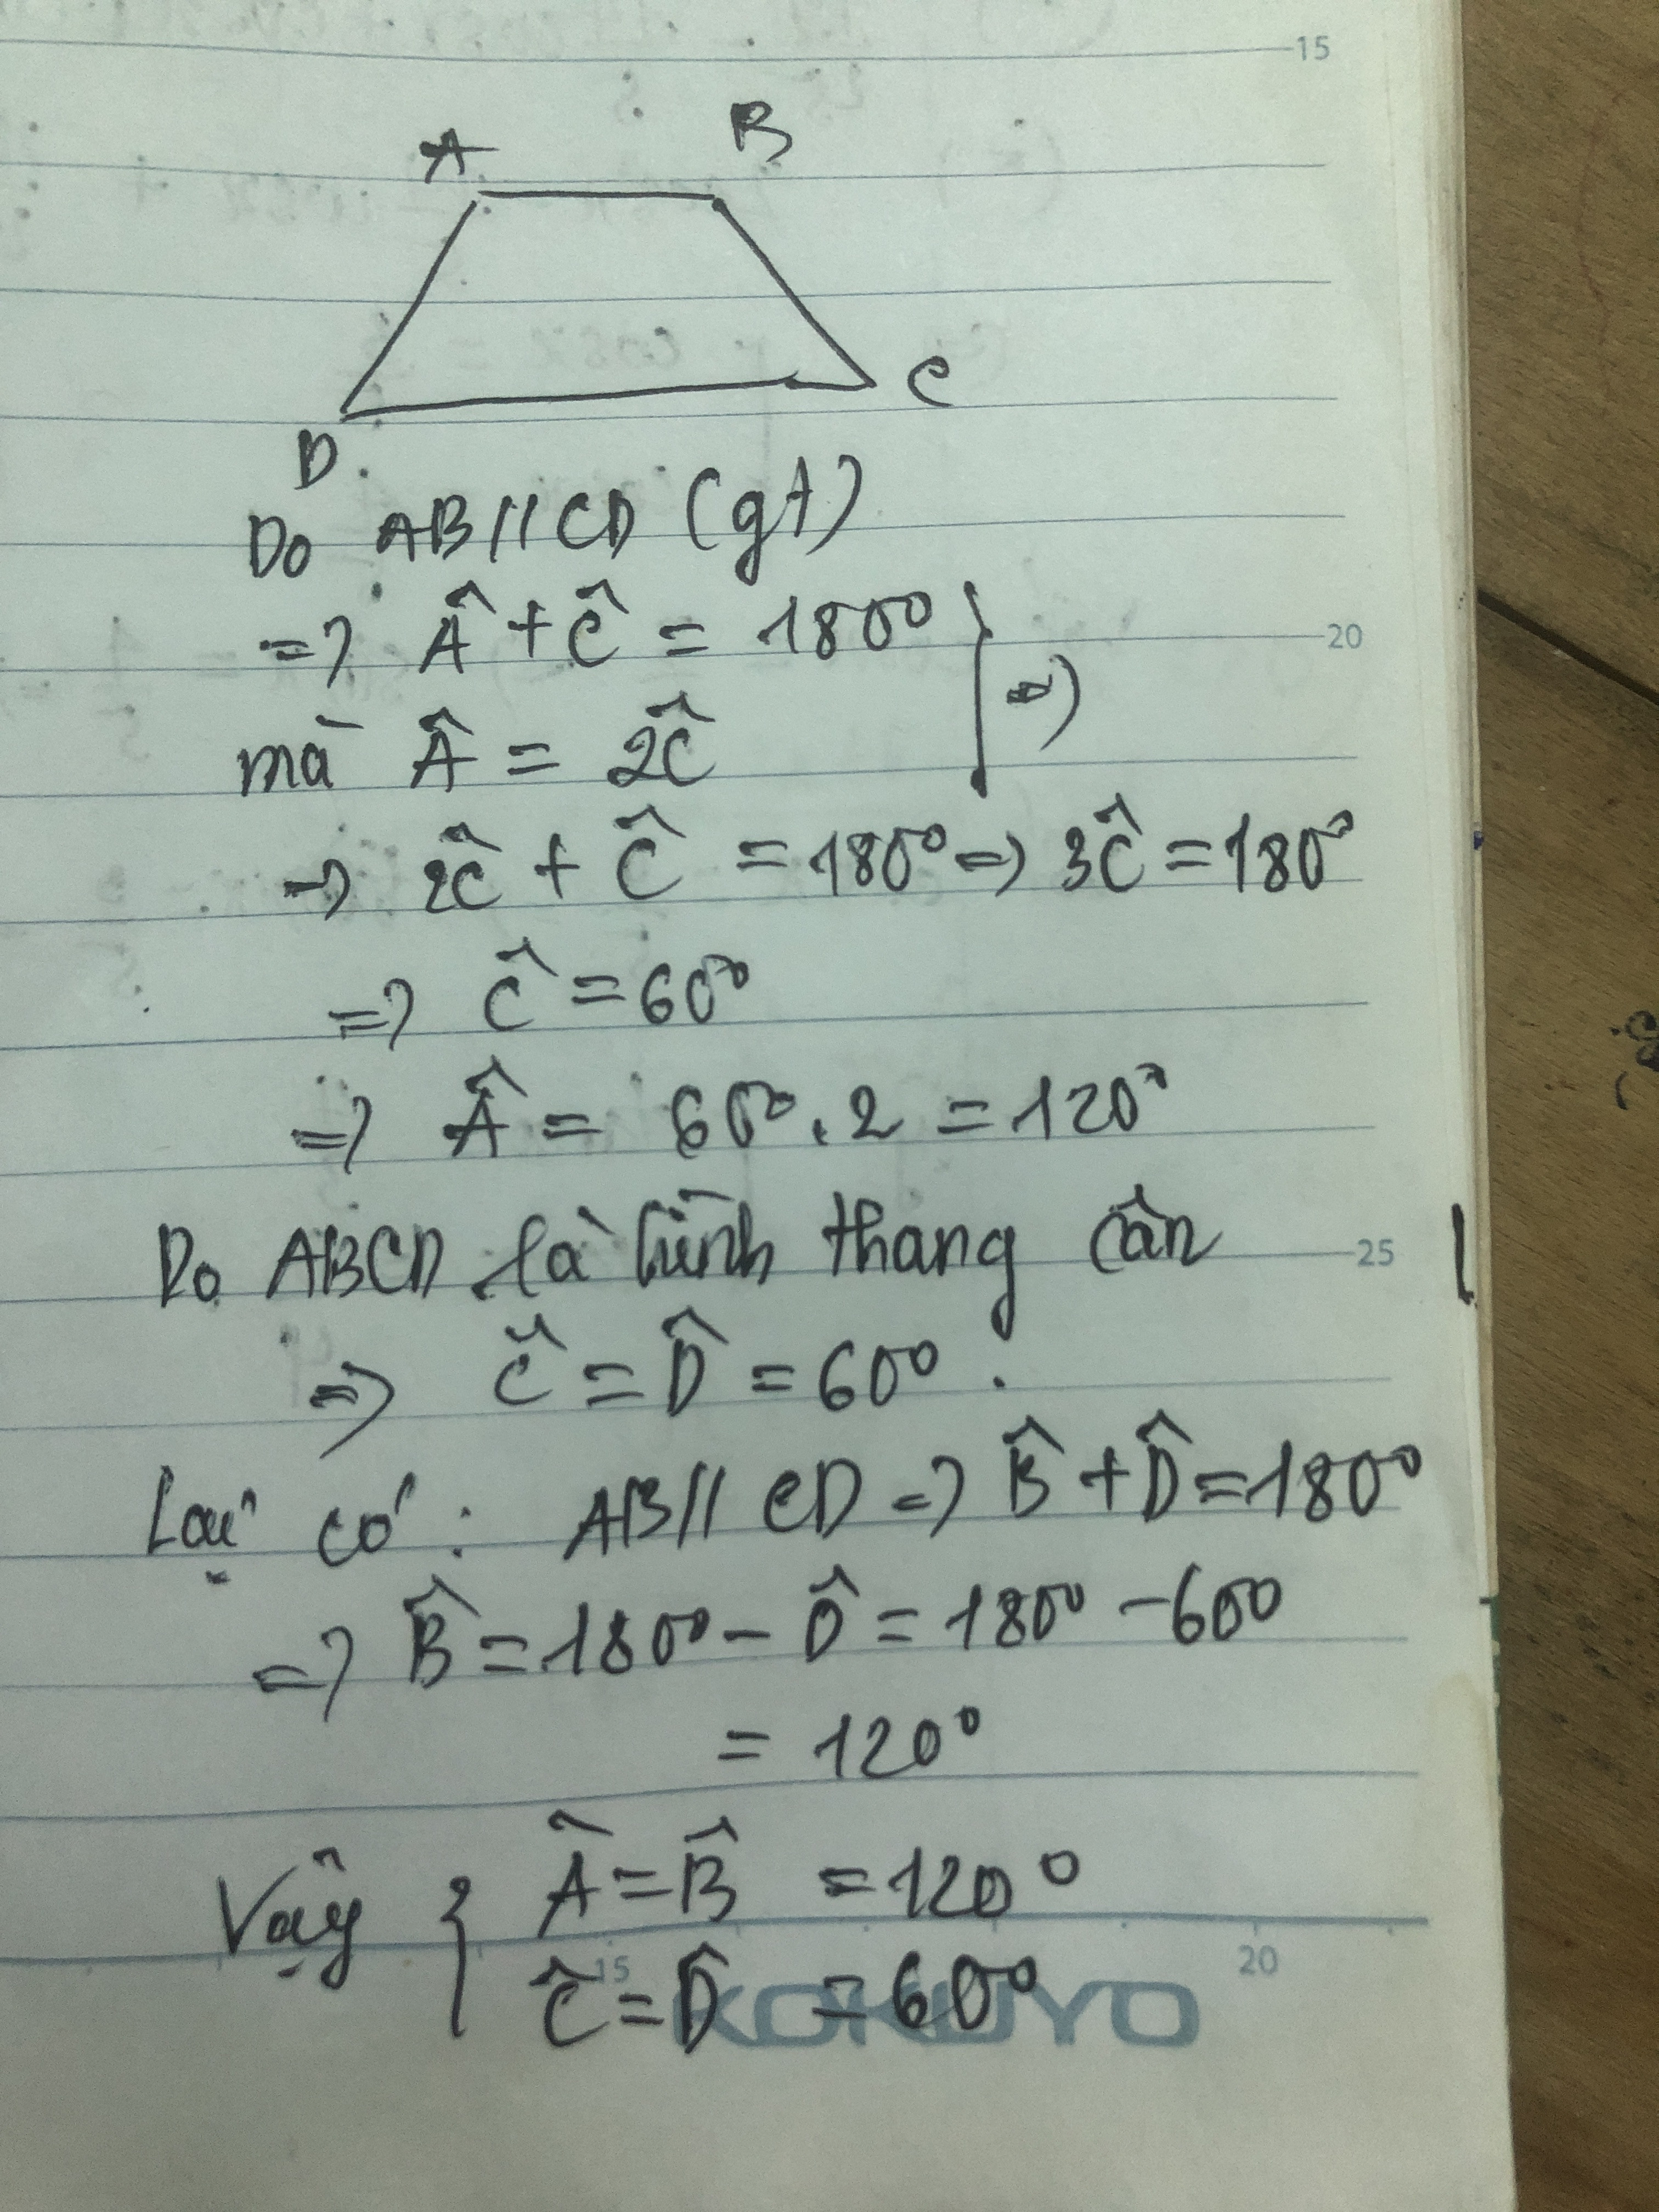 15
A B
C
D
Do AB // CD (gt)
=> Â + Ĉ = 180° 20
mà Â = 2Ĉ =>
=> 2Ĉ + Ĉ = 180° => 3Ĉ = 180°
=> Ĉ = 60°
=> Â = 60° . 2 = 120°
Do ABCD là hình thang cân 25
=> Ĉ = D̂ = 60° .
Lại có : AB // CD => B̂ + D̂ = 180°
=> B̂ = 180° - D̂ = 180° - 60°
= 120°
Vậy { Â = B̂ = 120°
Ĉ = D̂ = 60°
15 20
KOKUYO